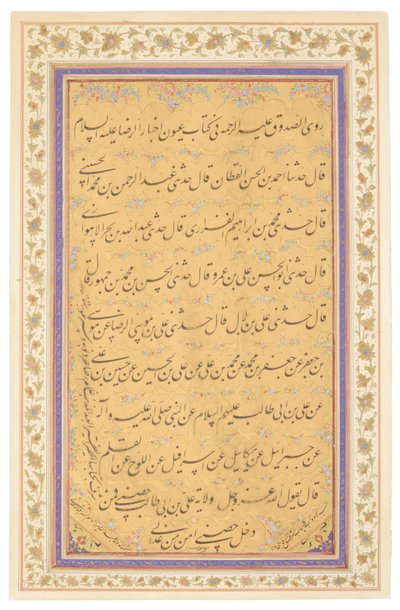 روی الصدوق علیه الرحمه فی کتاب عیون اخبار الرضا علیه السلام
قال حدثنا احمد بن الحسن القطان قال حدثنی عبد الرحمن بن محمد الحسینی
قال حدثنی محمد بن ابراهیم الفزاری قال حدثنی عبد الله بن بحر الاهوازی
قال حدثنی ابو الحسن علی بن عمرو قال حدثنی الحسن بن محمد بن جمهور قال
قال حدثنی علی بن بلال قال حدثنی علی بن موسی الرضا عن موسی
بن جعفر عن جعفر بن محمد عن محمد بن علی عن علی بن الحسین عن حسین بن علی
عن علی بن ابی طالب علیهم السلام عن النبی صلی الله علیه و آله
عن جبرائیل عن میکائیل عن اسرافیل عن اللوح عن القلم
قال یقول الله عز و جل ولایة علی بن ابی طالب حصنی فمن
دخل حصنی امن من عذابی